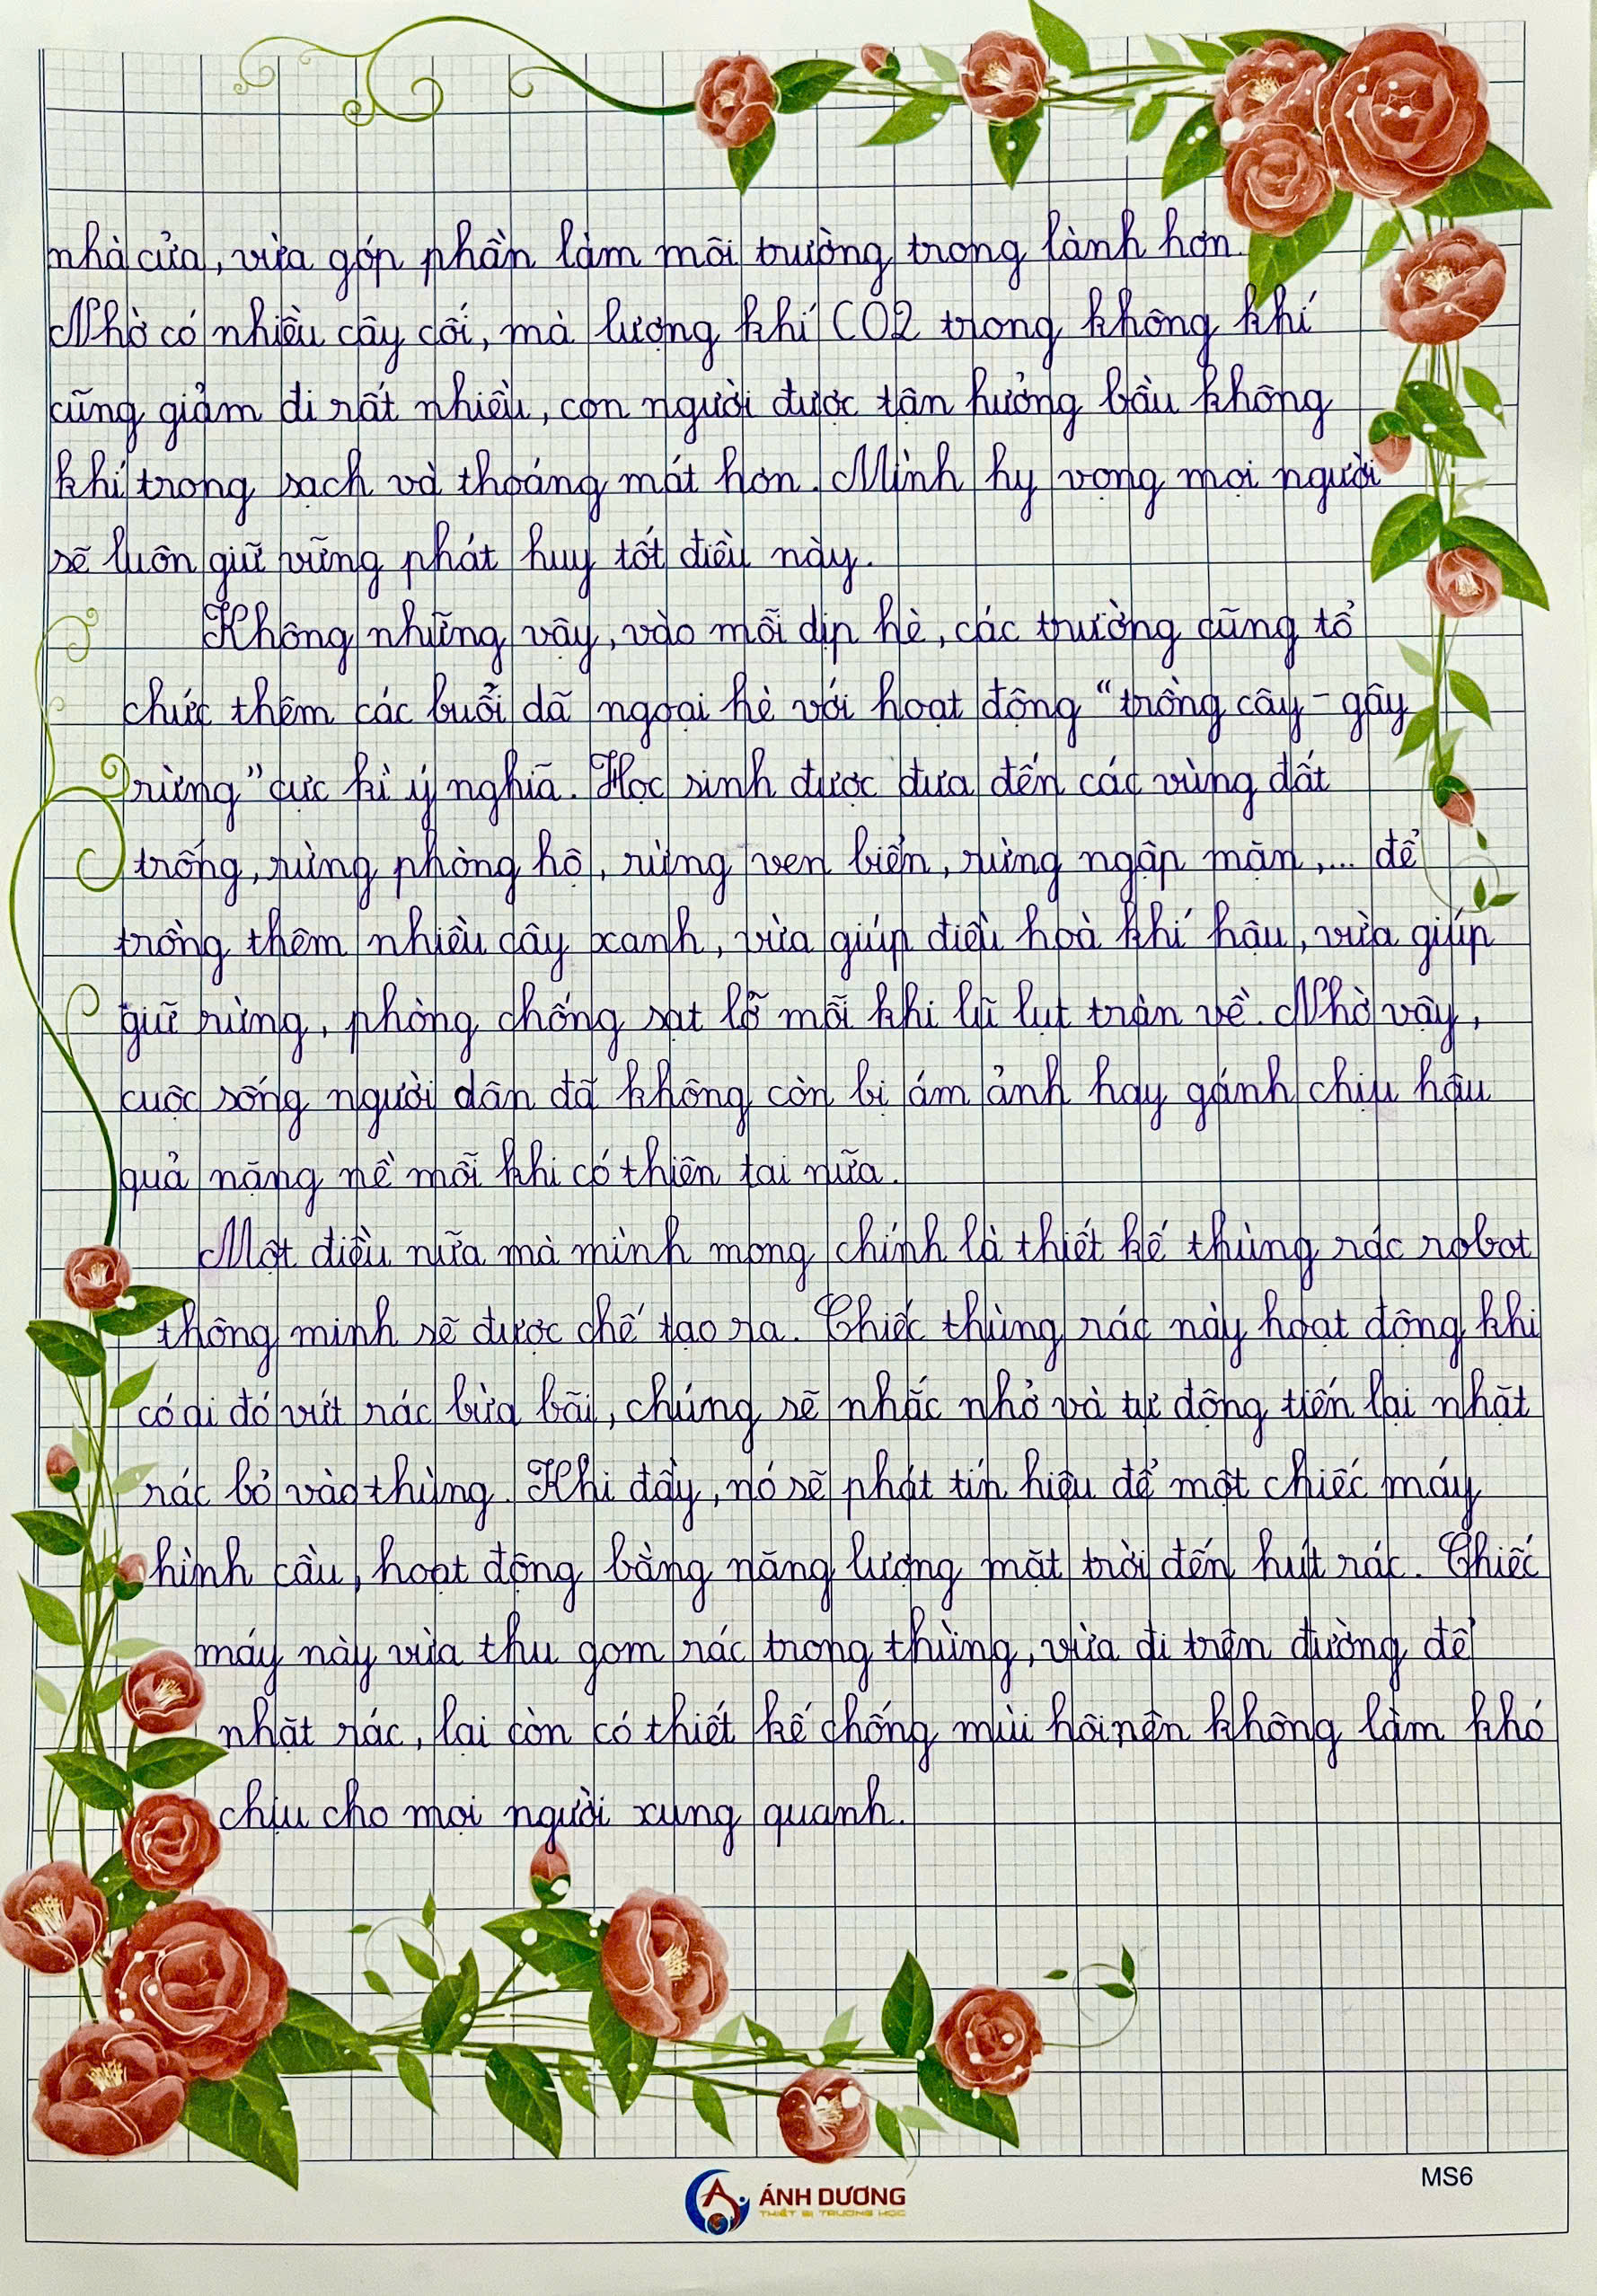 nhà cửa, vừa góp phần làm môi trường trong lành hơn.
Nhờ có nhiều cây cối, mà lượng khí CO2 trong không khí
cũng giảm đi rất nhiều, con người được tận hưởng bầu không
khí trong sạch và thoáng mát hơn. Mình hy vọng mọi người
sẽ luôn giữ vững phát huy tốt điều này.
Không những vậy, vào mỗi dịp hè, các trường cũng tổ
chức thêm các buổi dã ngoại hè với hoạt động “trồng cây - gây
rừng” cực kì ý nghĩa. Học sinh được đưa đến các vùng đất
trống, rừng phòng hộ, rừng ven biển, rừng ngập mặn,... để
trồng thêm nhiều cây xanh, vừa giúp điều hoà khí hậu, vừa giúp
giữ rừng, phòng chống sạt lỡ mỗi khi lũ lụt tràn về. Nhờ vậy,
cuộc sống người dân đã không còn bị ám ảnh hay gánh chịu hậu
quả nặng nề mỗi khi có thiên tai nữa.
Một điều nữa mà mình mong chính là thiết kế thùng rác robot
thông minh sẽ được chế tạo ra. Chiếc thùng rác này hoạt động khi
có ai đó vứt rác bừa bãi, chúng sẽ nhắc nhở và tự động tiến lại nhặt
rác bỏ vào thùng. Khi đầy, nó sẽ phát tín hiệu để một chiếc máy
hình cầu, hoạt động bằng năng lượng mặt trời đến hút rác. Chiếc
máy này vừa thu gom rác trong thùng, vừa đi trên đường để
nhặt rác, lại còn có thiết kế chống mùi hôi nên không làm khó
chịu cho mọi người xung quanh.
MS6
ÁNH DƯƠNG
THIẾT BỊ TRƯỜNG HỌC